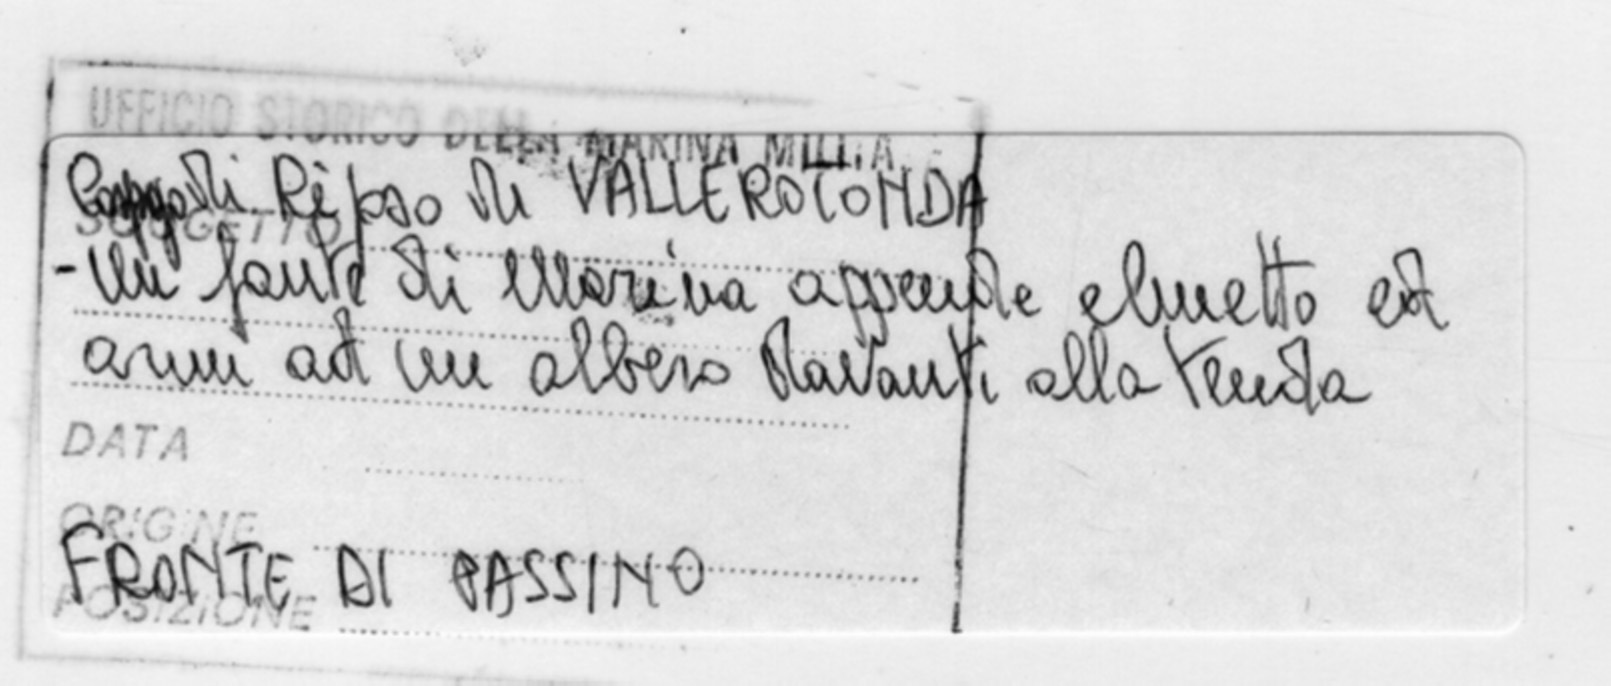 UFFICIO STORICO DELLA MARINA MILIT.A.
di Riposo di VALLEROTONDA
SOGGETTO
- Un fante di Marina appende elmetto ed
armi ad un albero davanti alla tenda
DATA
ORIGINE
FRONTE DI CASSINO
POSIZIONE